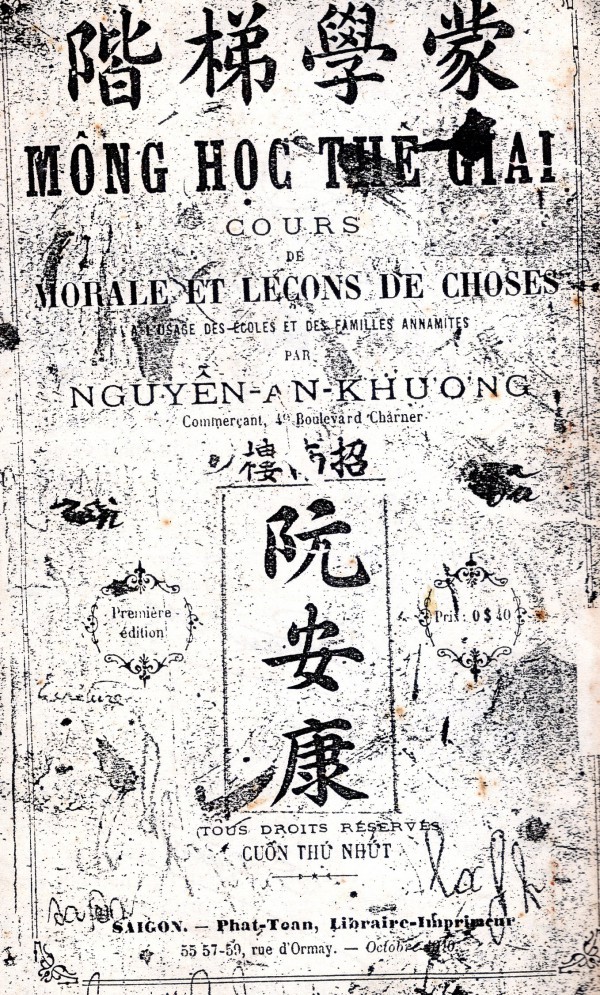 蒙學梯階
MÔNG HỌC THÊ GIAI
COURS
DE
MORALE ET LEÇONS DE CHOSES
A L'USAGE DES ÉCOLES ET DES FAMILLES ANNAMITES
PAR
NGUYỄN-AN-KHƯƠNG
Commerçant, Boulevard Charner
招南樓
阮安康
Première
édition
Prix: 0$40
TOUS DROITS RÉSERVÉS
CUỐN THỨ NHỨT
SAIGON. — Phat-Toan, Libraire-Imprimeur
55-57-59, rue d'Ormay. — Octobre 1910